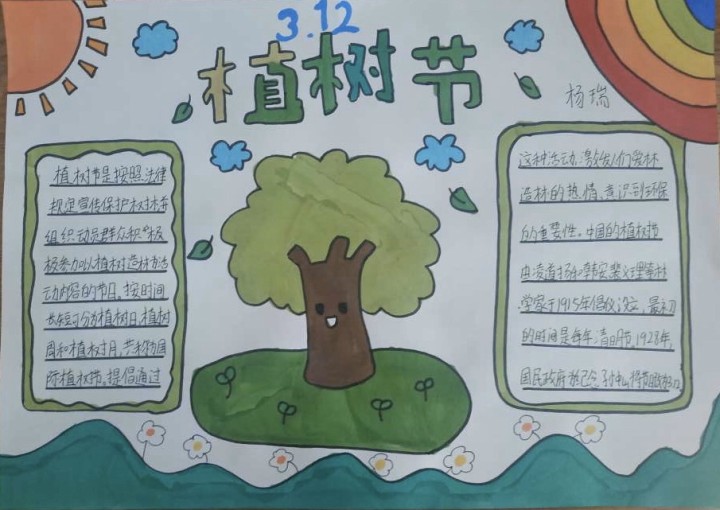 3.12
植树节
杨瑞
植树节是按照法律
规定宣传保护树木并
组织动员群众积极
极参加以植树造林为活
动内容的节日。按时间
长短可分为植树日、植树
周和植树月，共称为国
际植树节。提倡通过
这种活动，激发人们爱林
造林的热情、意识到环保
的重要性。中国的植树节
由凌道扬、韩安、裴义理等林
学家于1915年倡议设立，最初
的时间是每年清明节。1928年，
国民政府为纪念孙中山